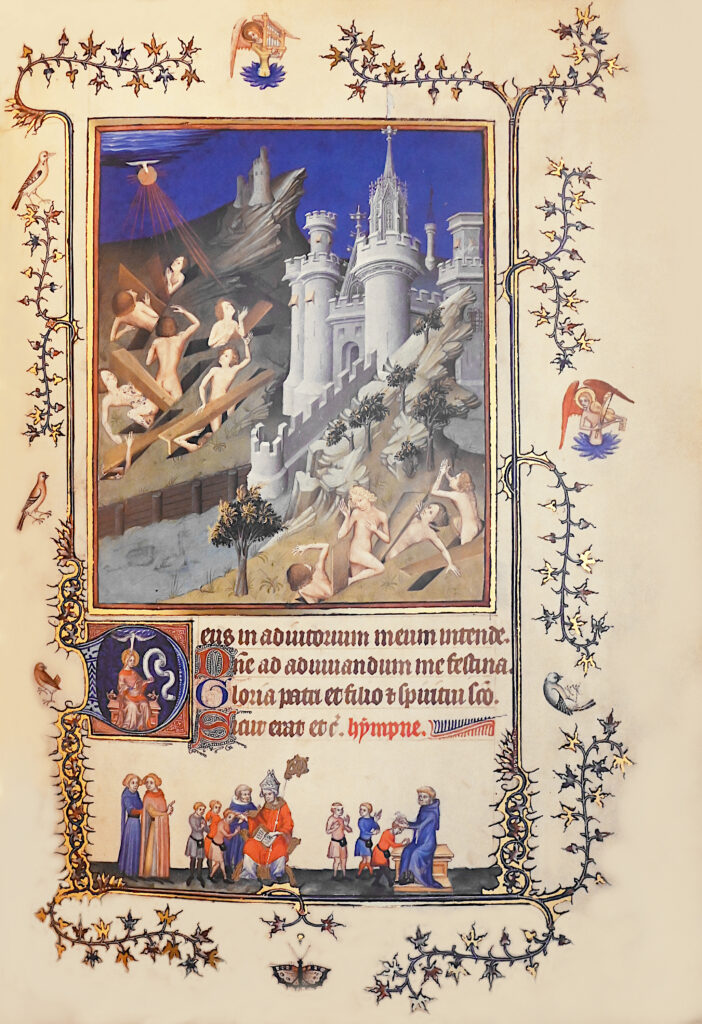 Deus in adiutorium meum intende.
Dñe ad adiuuandum me festina.
Gloria patri et filio ⁊ spiritui sc̄o.
Sicut erat et c̄. hỹmpne.